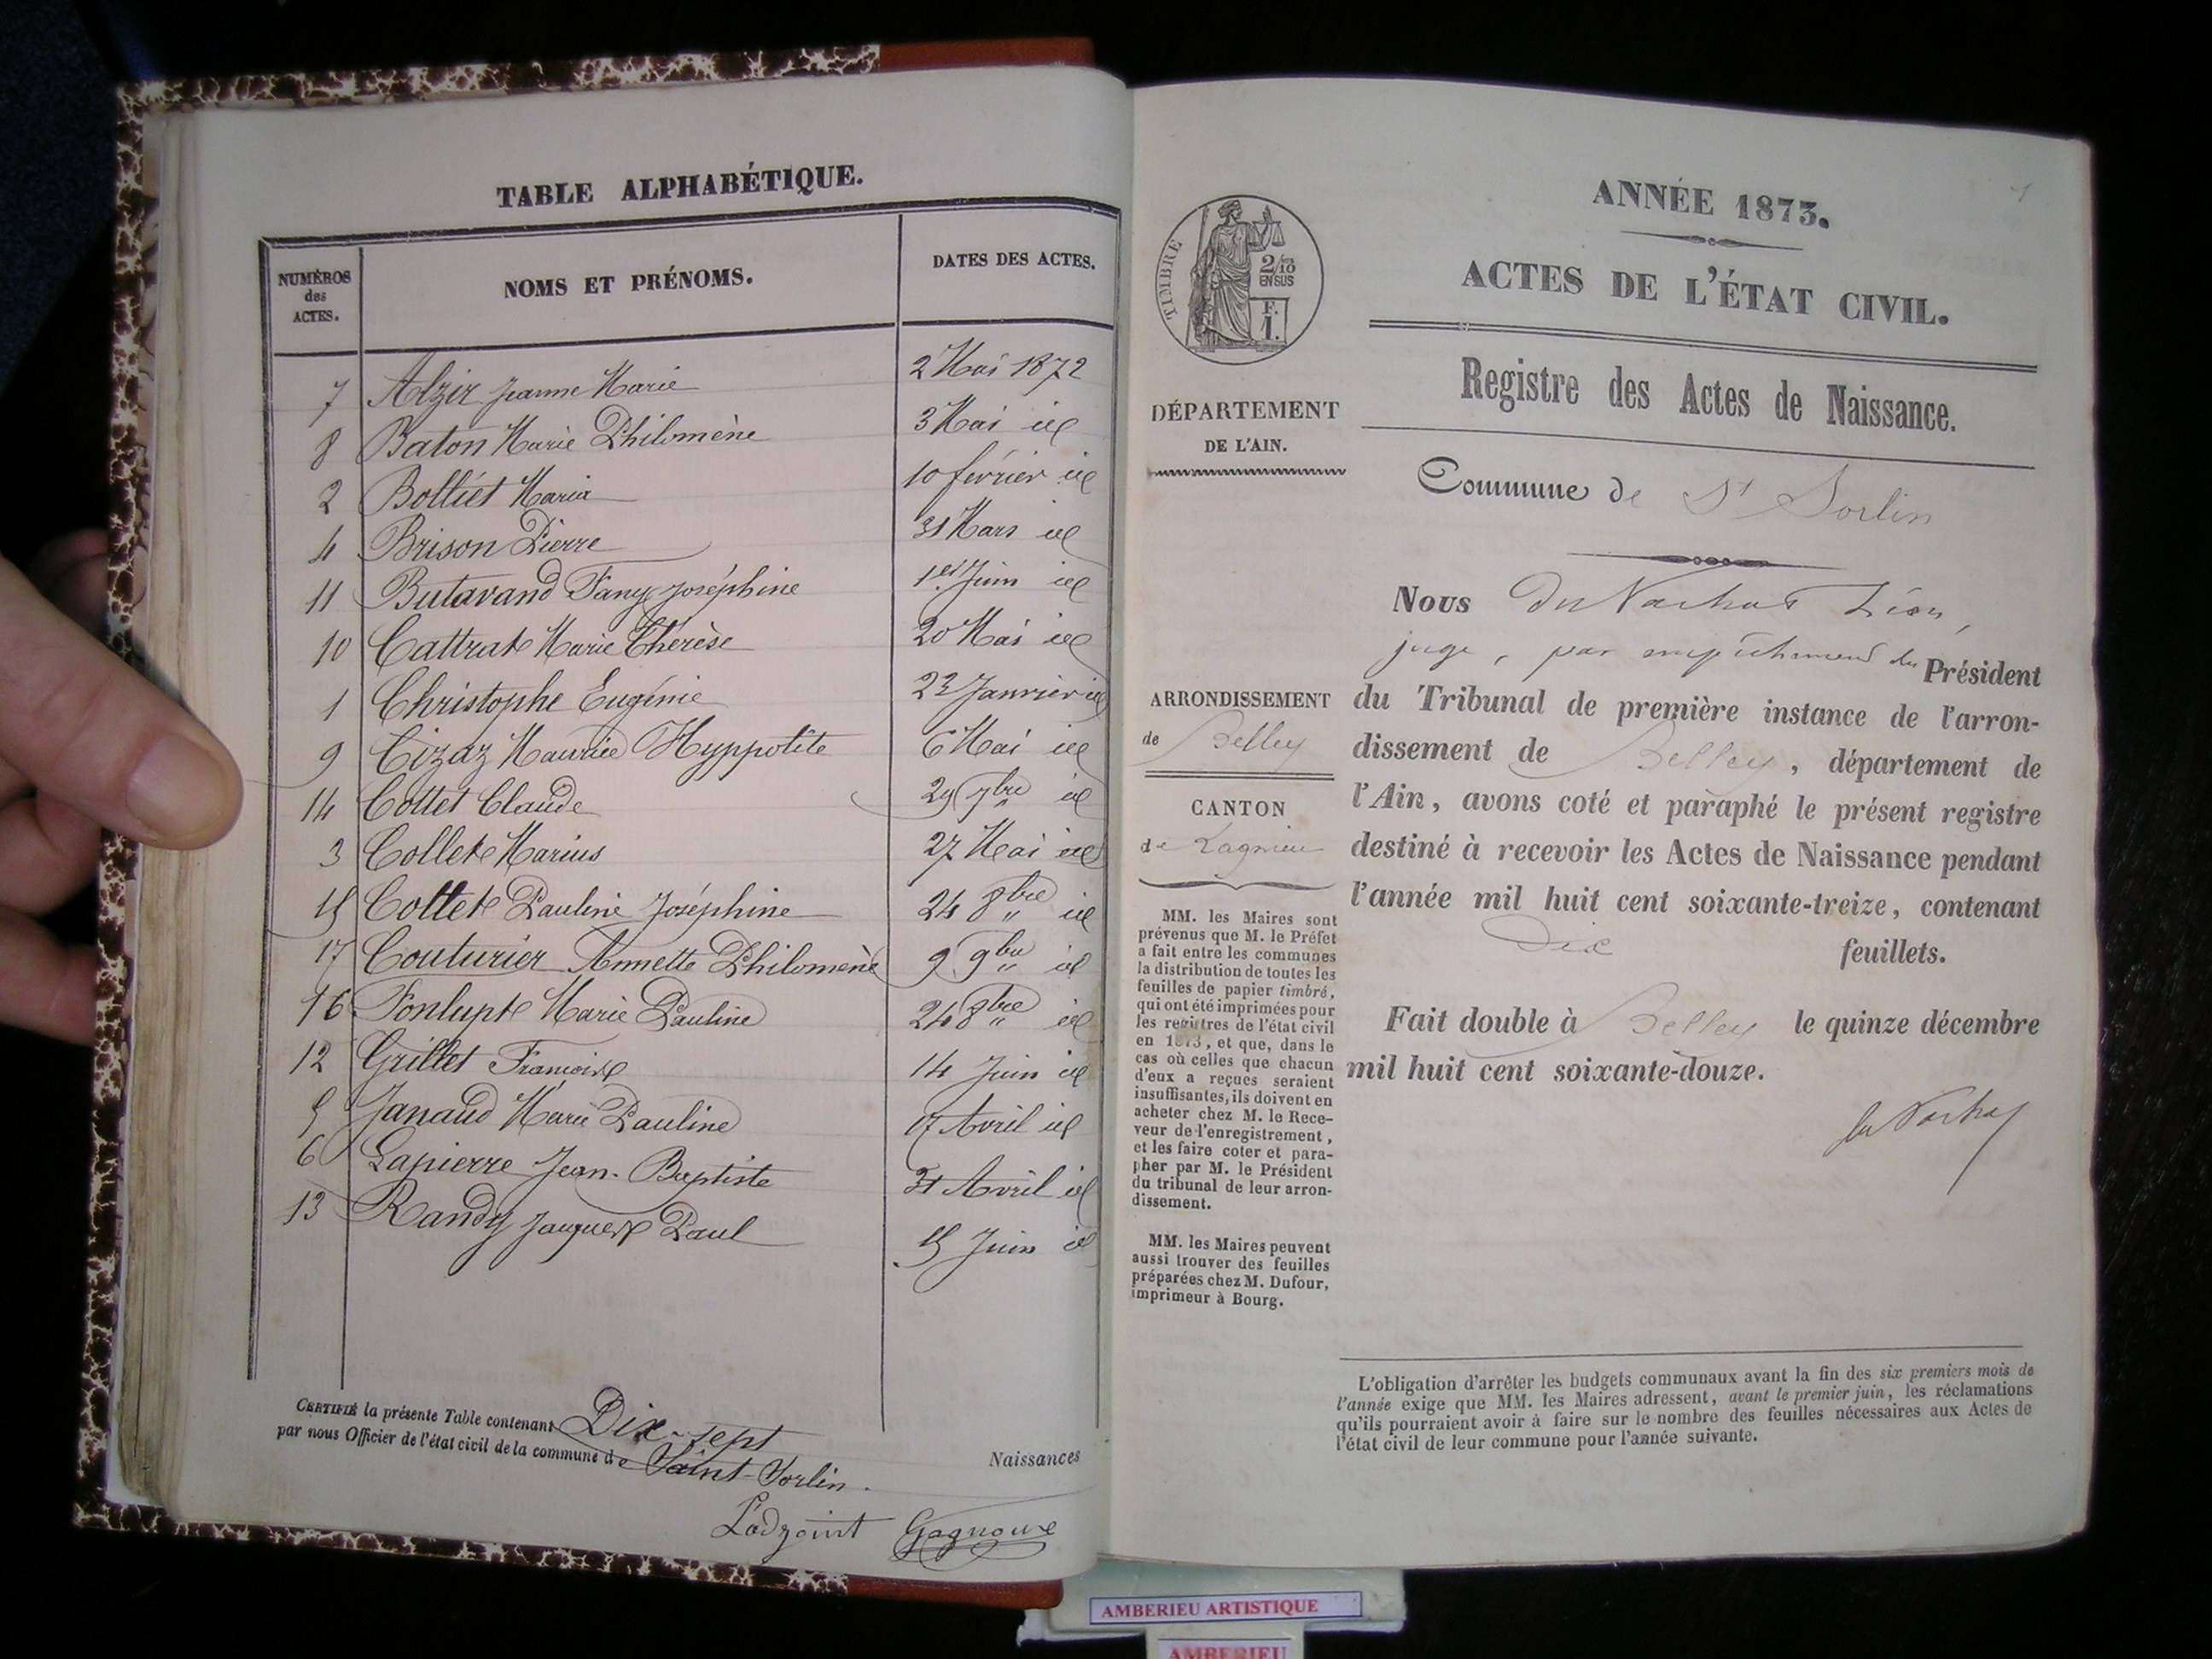 TABLE ALPHABÉTIQUE.
NUMÉROS des ACTES. NOMS ET PRÉNOMS. DATES DES ACTES.
7 Alzir Jeanne Marie 2 Mai 1872
8 Baton Marie Philomène 3 Mai id
2 Bolliet Maria 10 février id
4 Brison Pierre 31 Mars id
11 Butavand Fany Joséphine 1er Juin id
10 Cattrat Marie Thérèse 20 Mai id
1 Christophe Eugénie 23 Janvier id
9 Cizaz Maurice Hyppolite 6 Mai id
14 Cottet Claude 29 7bre id
3 Collet Marius 27 Mai id
15 Cottet Pauline Joséphine 24 8bre id
17 Couturier Annette Philomène 9 9bre id
16 Fonlupt Marie Pauline 24 8bre id
12 Grillet François 14 Juin id
5 Janaud Marie Pauline 17 Avril id
6 Lapierre Jean-Baptiste Avril id
13 Randy Jacques Paul 15 Juin id
CERTIFIÉ la présente Table contenant Dix-sept Naissances
par nous Officier de l'état civil de la commune de Saint-Sorlin.
L'adjoint Gagnoux
1
ANNÉE 1873.
ACTES DE L'ÉTAT CIVIL.
Registre des Actes de Naissance.
TIMBRE
2/10
EN SUS
F.
1.
DÉPARTEMENT
DE L'AIN.
ARRONDISSEMENT
de Belley
CANTON
de Lagnieu
MM. les Maires sont
prévenus que M. le Préfet
a fait entre les communes
la distribution de toutes les
feuilles de papier timbré,
qui ont été imprimées pour
les registres de l'état civil
en 1873, et que, dans le
cas où celles que chacun
d'eux a reçues seraient
insuffisantes, ils doivent en
acheter chez M. le Rece-
veur de l'enregistrement,
et les faire coter et para-
pher par M. le Président
du tribunal de leur arron-
dissement.
MM. les Maires peuvent
aussi trouver des feuilles
préparées chez M. Dufour,
imprimeur à Bourg.
Commune de St Sorlin
Nous Léon,
juge, par empêchement du Président
du Tribunal de première instance de l'arron-
dissement de Belley, département de
l'Ain, avons coté et paraphé le présent registre
destiné à recevoir les Actes de Naissance pendant
l'année mil huit cent soixante-treize, contenant
Dix feuillets.
Fait double à Belley le quinze décembre
mil huit cent soixante-douze.
L'obligation d'arrêter les budgets communaux avant la fin des six premiers mois de
l'année exige que MM. les Maires adressent, avant le premier juin, les réclamations
qu'ils pourraient avoir à faire sur le nombre des feuilles nécessaires aux Actes de
l'état civil de leur commune pour l'année suivante.
AMBERIEU ARTISTIQUE
AMBERIEU